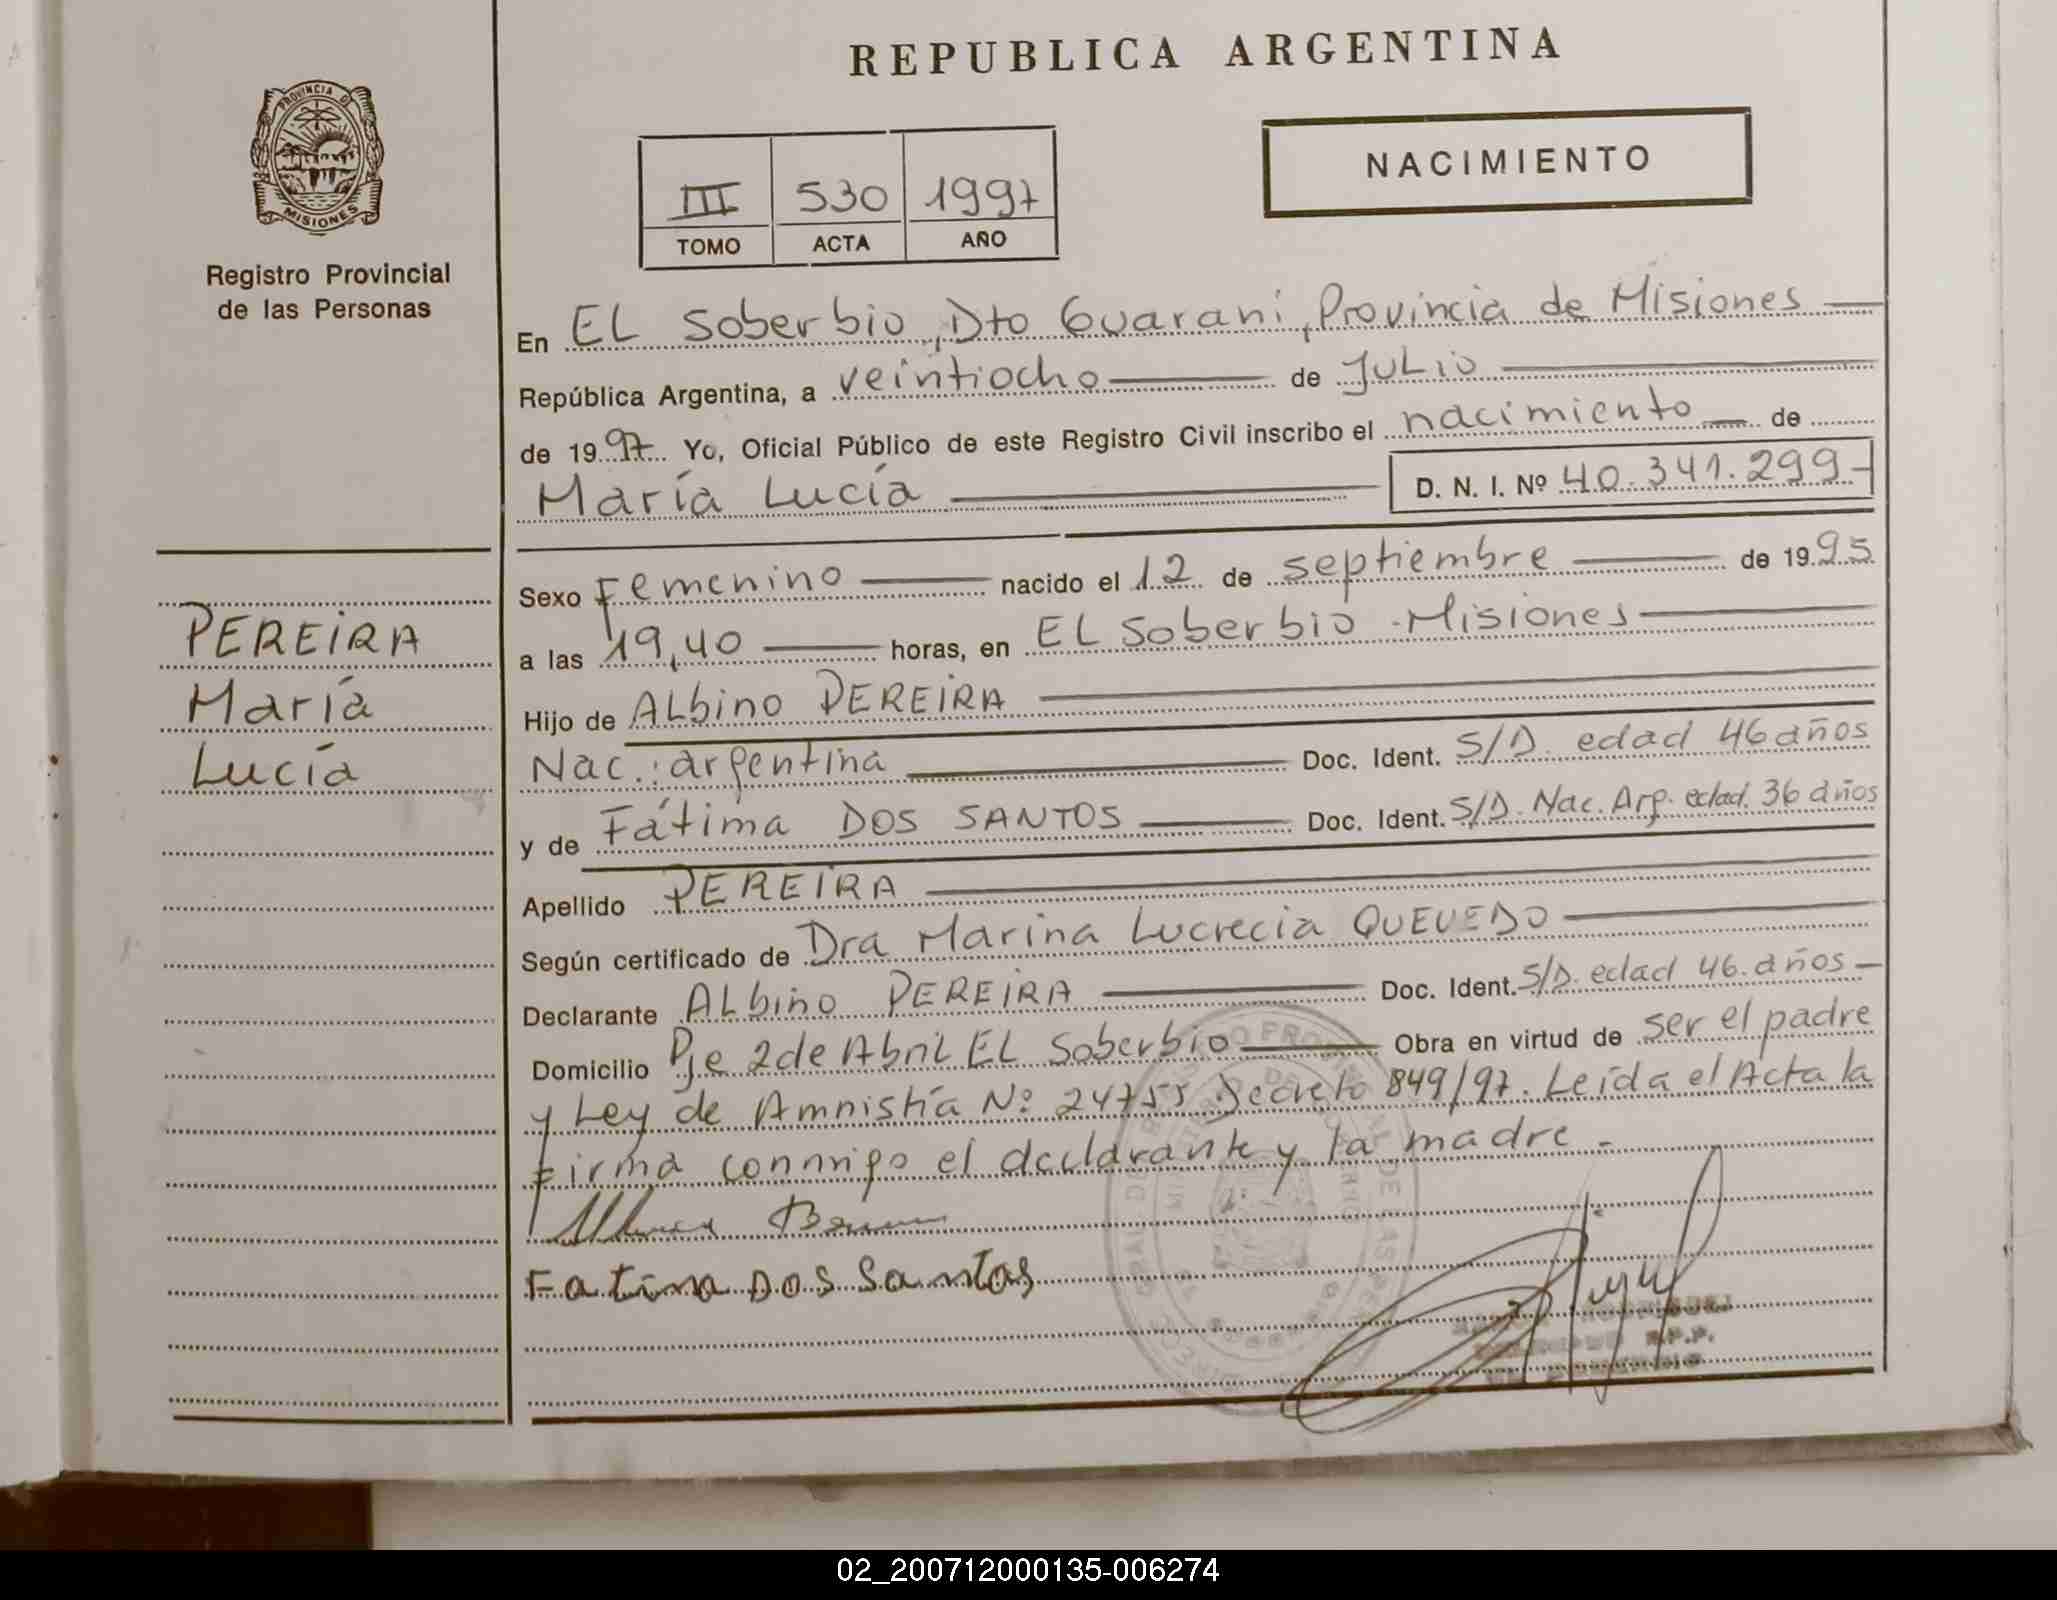 REPUBLICA ARGENTINA
PROVINCIA DE
MISIONES
Registro Provincial
de las Personas
III 530 1997
TOMO ACTA AÑO
NACIMIENTO
En EL Soberbio, Dto Guaraní, Provincia de Misiones
República Argentina, a veintiocho de JuLio
de 1997 Yo, Oficial Público de este Registro Civil inscribo el nacimiento de
María Lucía D. N. I. Nº 40.341.299-
PEREIRA
María
Lucía
Sexo Femenino nacido el 12 de septiembre de 1995
a las 19,40 horas, en EL Soberbio - Misiones
Hijo de ALbino PEREIRA
Nac.: argentina Doc. Ident. S/D. edad 46 años
y de Fátima DOS SANTOS Doc. Ident. S/D. Nac. Arg. edad. 36 años
Apellido PEREIRA
Según certificado de Dra Marina Lucrecia QUEVEDO
Declarante ALbino PEREIRA Doc. Ident. S/D. edad 46. años-
Domicilio Pje 2 de Abril EL Soberbio Obra en virtud de ser el padre
y Ley de Amnistía Nº 24755 Decreto 849/97. Leída el Acta la
firma conmigo el declarante y la madre.-
Fatima DOS Santos
02_200712000135-006274